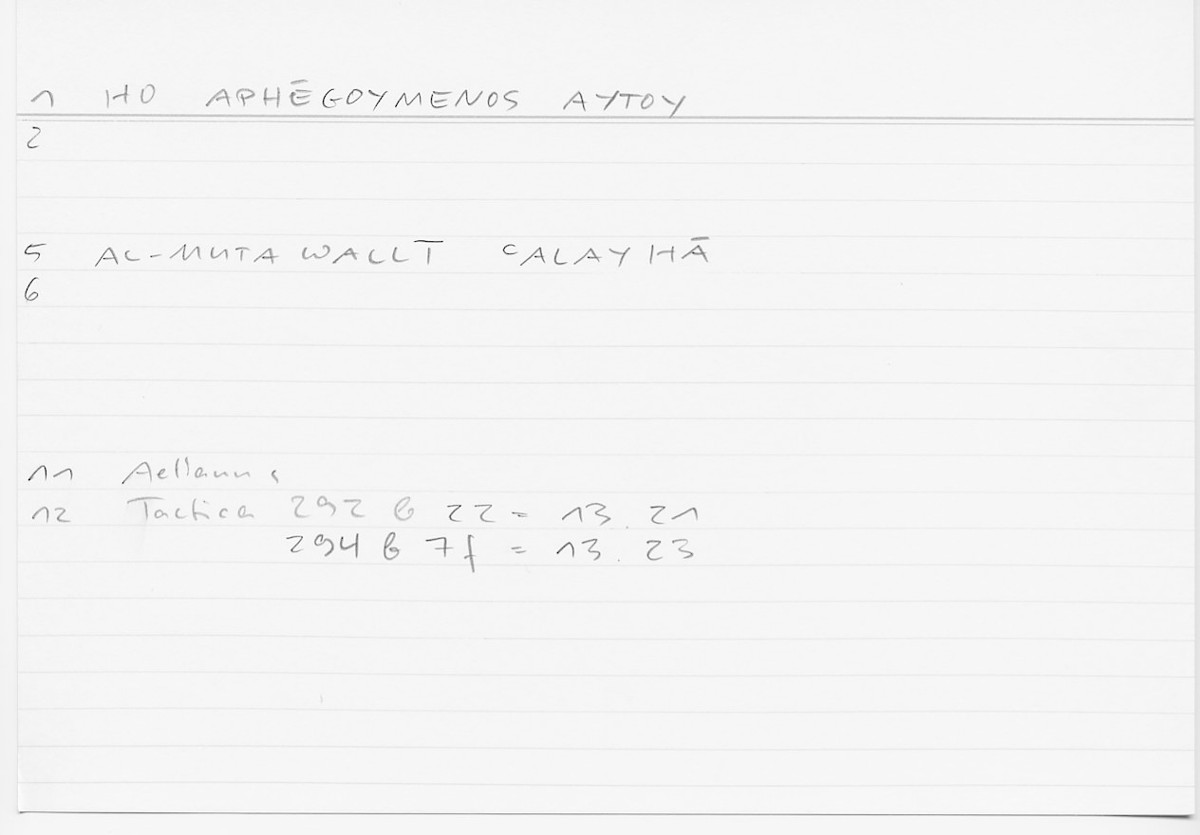 1 HO APHĒGOYMENOS AYTOY
2
5 AL-MUTAWALLĪ ꜤALAYHĀ
6
11 Aelianus
12 Tactica 292 b 22 = 13.21
294 b 7f = 13.23